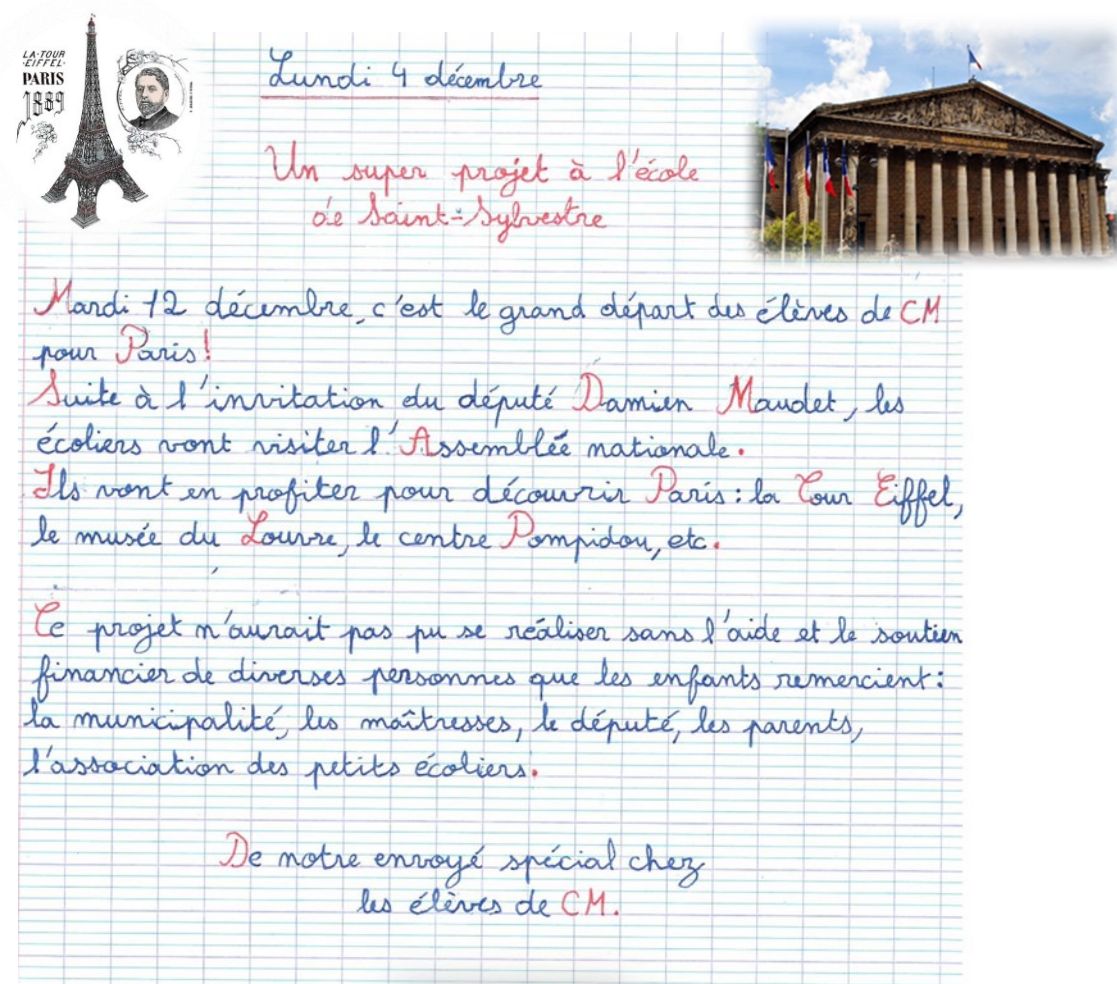 LA·TOUR
·EIFFEL·
PARIS
1889
Lundi 4 décembre
Un super projet à l'école
de Saint-Sylvestre
Mardi 12 décembre, c'est le grand départ des élèves de CM
pour Paris !
Suite à l'invitation du député Damien Maudet, les
écoliers vont visiter l'Assemblée nationale.
Ils vont en profiter pour découvrir Paris : la Tour Eiffel,
le musée du Louvre, le centre Pompidou, etc.
Ce projet n'aurait pas pu se réaliser sans l'aide et le soutien
financier de diverses personnes que les enfants remercient :
la municipalité, les maîtresses, le député, les parents,
l'association des petits écoliers.
De notre envoyé spécial chez
les élèves de CM.